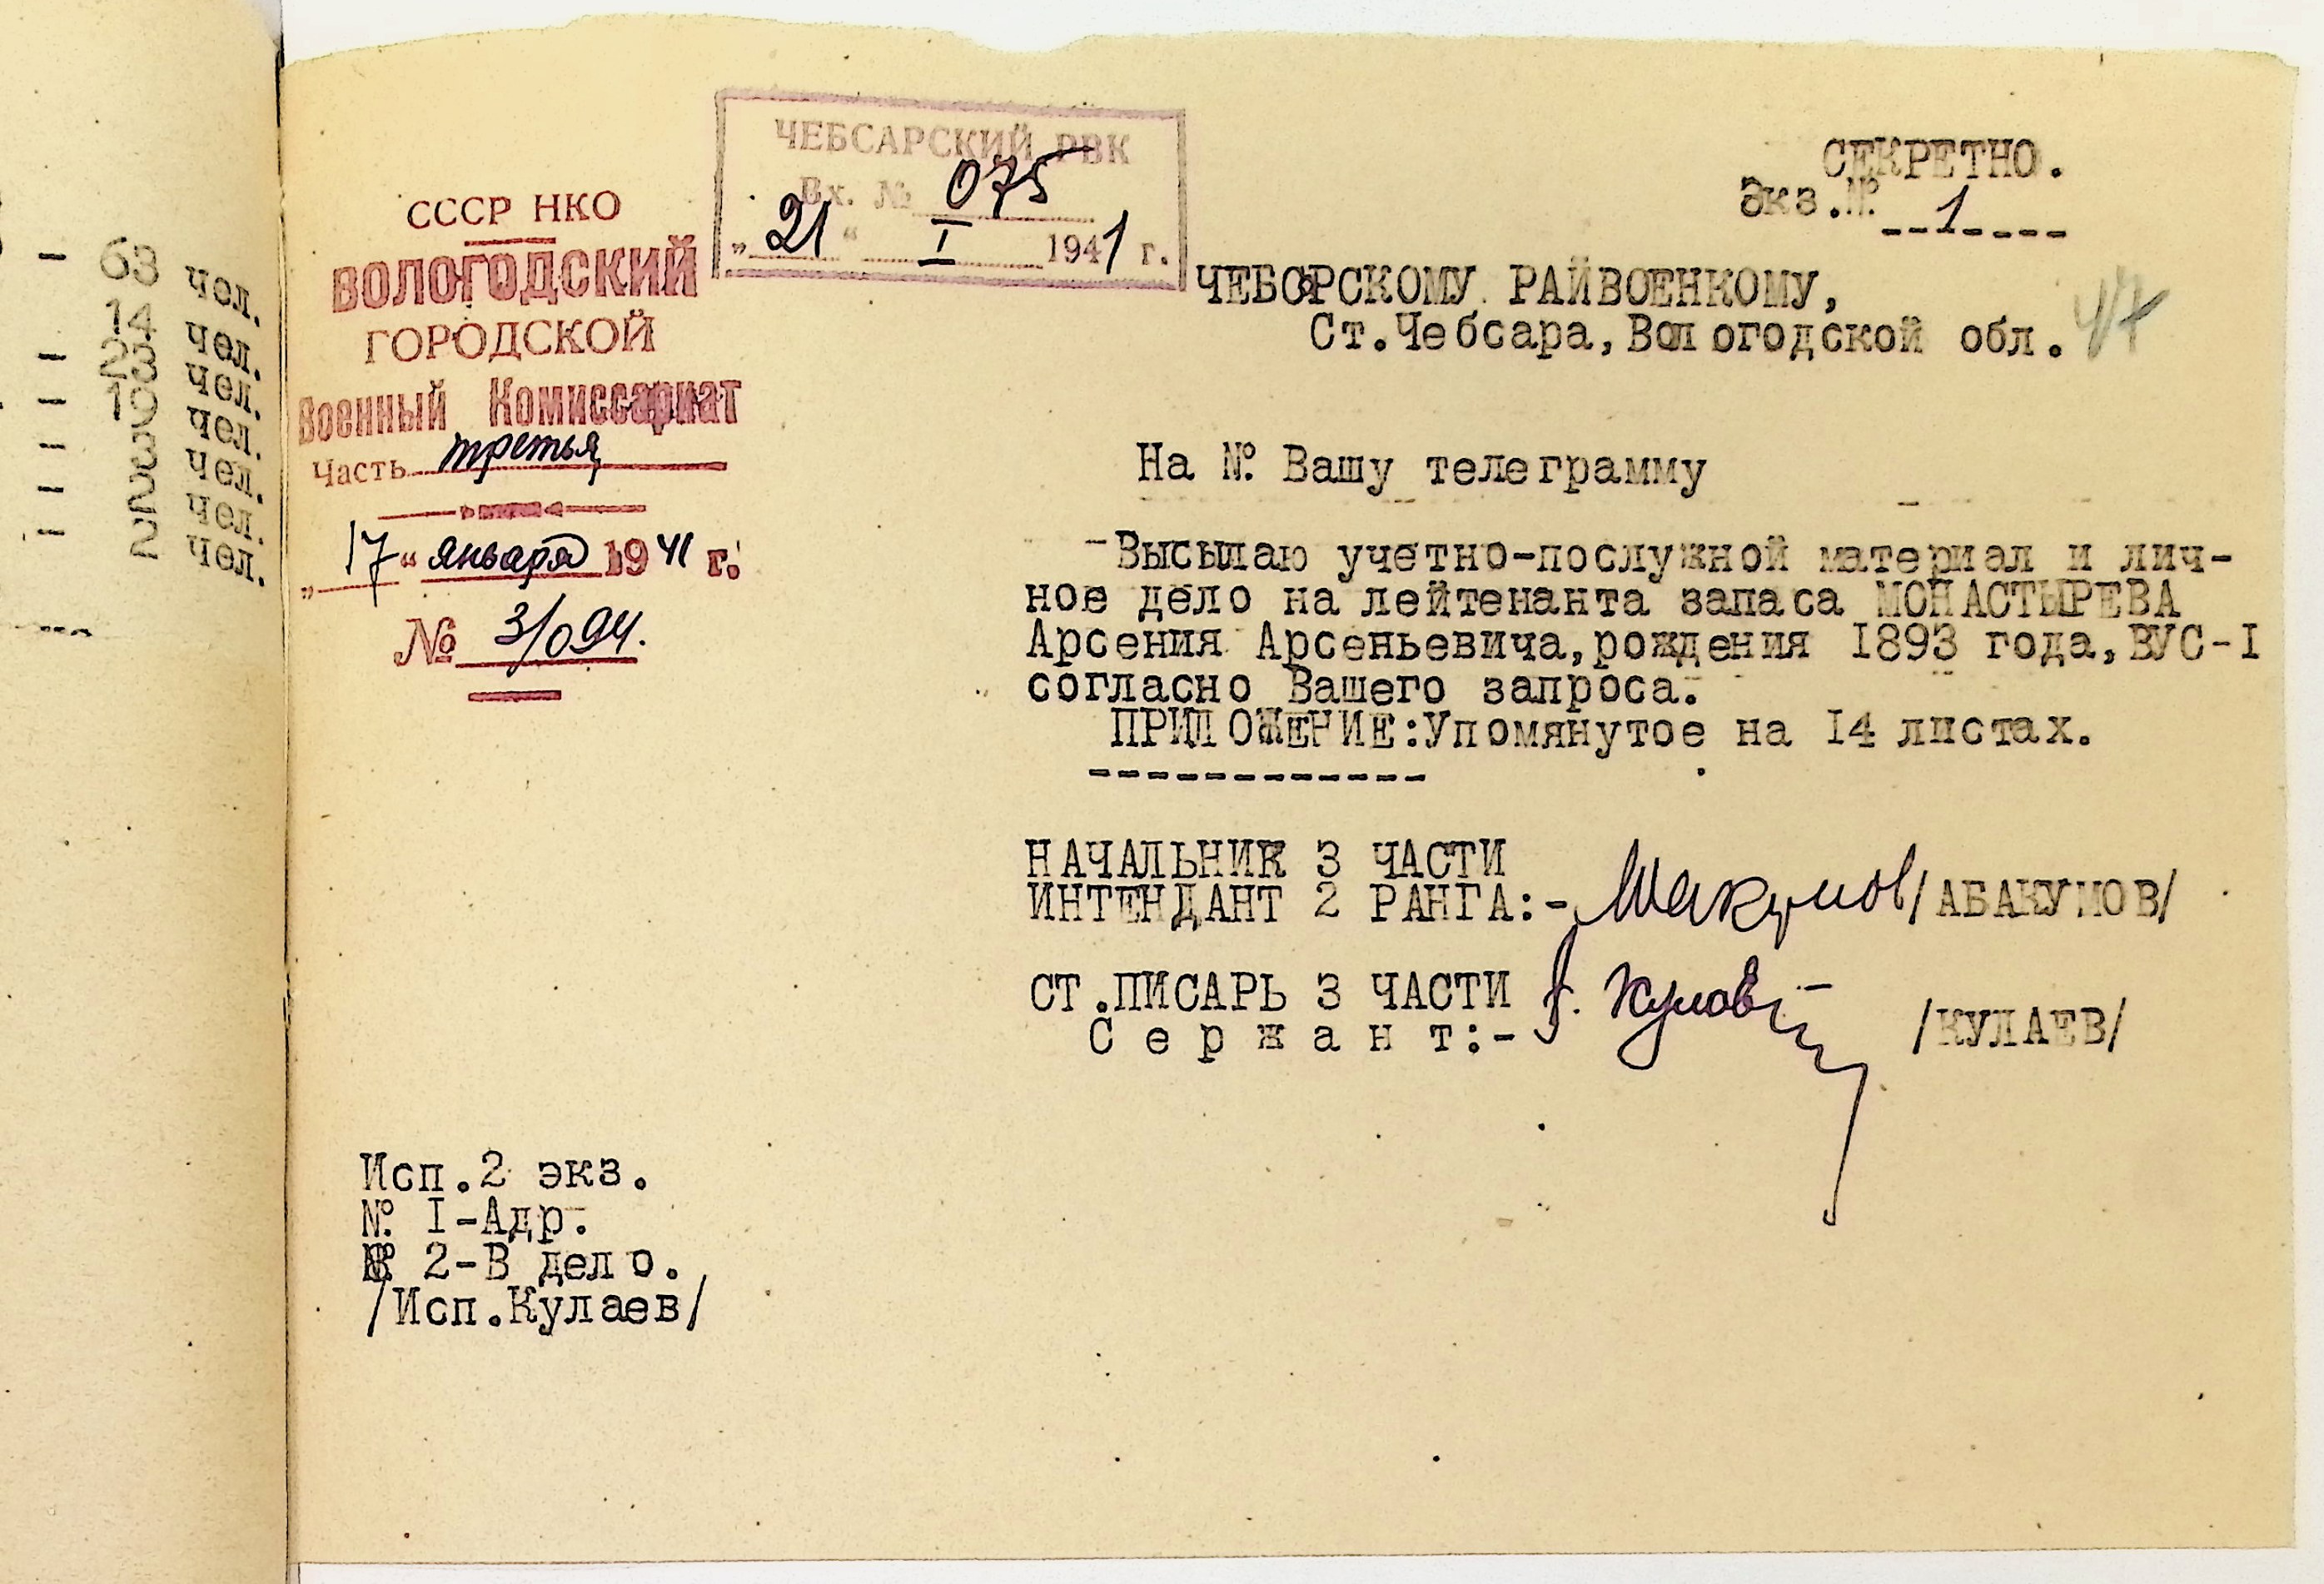 - 63 чел.
14 чел.
- 23 чел.
- 19 чел.
- 3 чел.
- 2 чел.
- 2 чел.
ЧЕБСАРСКИЙ РВК
Вх. № 075
„21“ I 1941 г.
СССР НКО
ВОЛОГОДСКИЙ
ГОРОДСКОЙ
Военный Комиссариат
Часть третья
„17“ января 1941 г.
№ 3/094.
СЕКРЕТНО.
Экз.№ 1
ЧЕБСАРСКОМУ РАЙВОЕНКОМУ,
Ст.Чебсара,Вологодской обл.
47
На № Вашу телеграмму
Высылаю учетно-послужной материал и лич-
ное дело на лейтенанта запаса МОНАСТЫРЕВА
Арсения Арсеньевича,рождения 1893 года,ВУС-I
согласно Вашего запроса.
ПРИЛОЖЕНИЕ:Упомянутое на 14 листах.
НАЧАЛЬНИК 3 ЧАСТИ
ИНТЕНДАНТ 2 РАНГА:- /АБАКУМОВ/
СТ.ПИСАРЬ 3 ЧАСТИ
Сержант:- /КУЛАЕВ/
Исп.2 экз.
№ I-Адр.
№ 2-В дело.
/Исп.Кулаев/